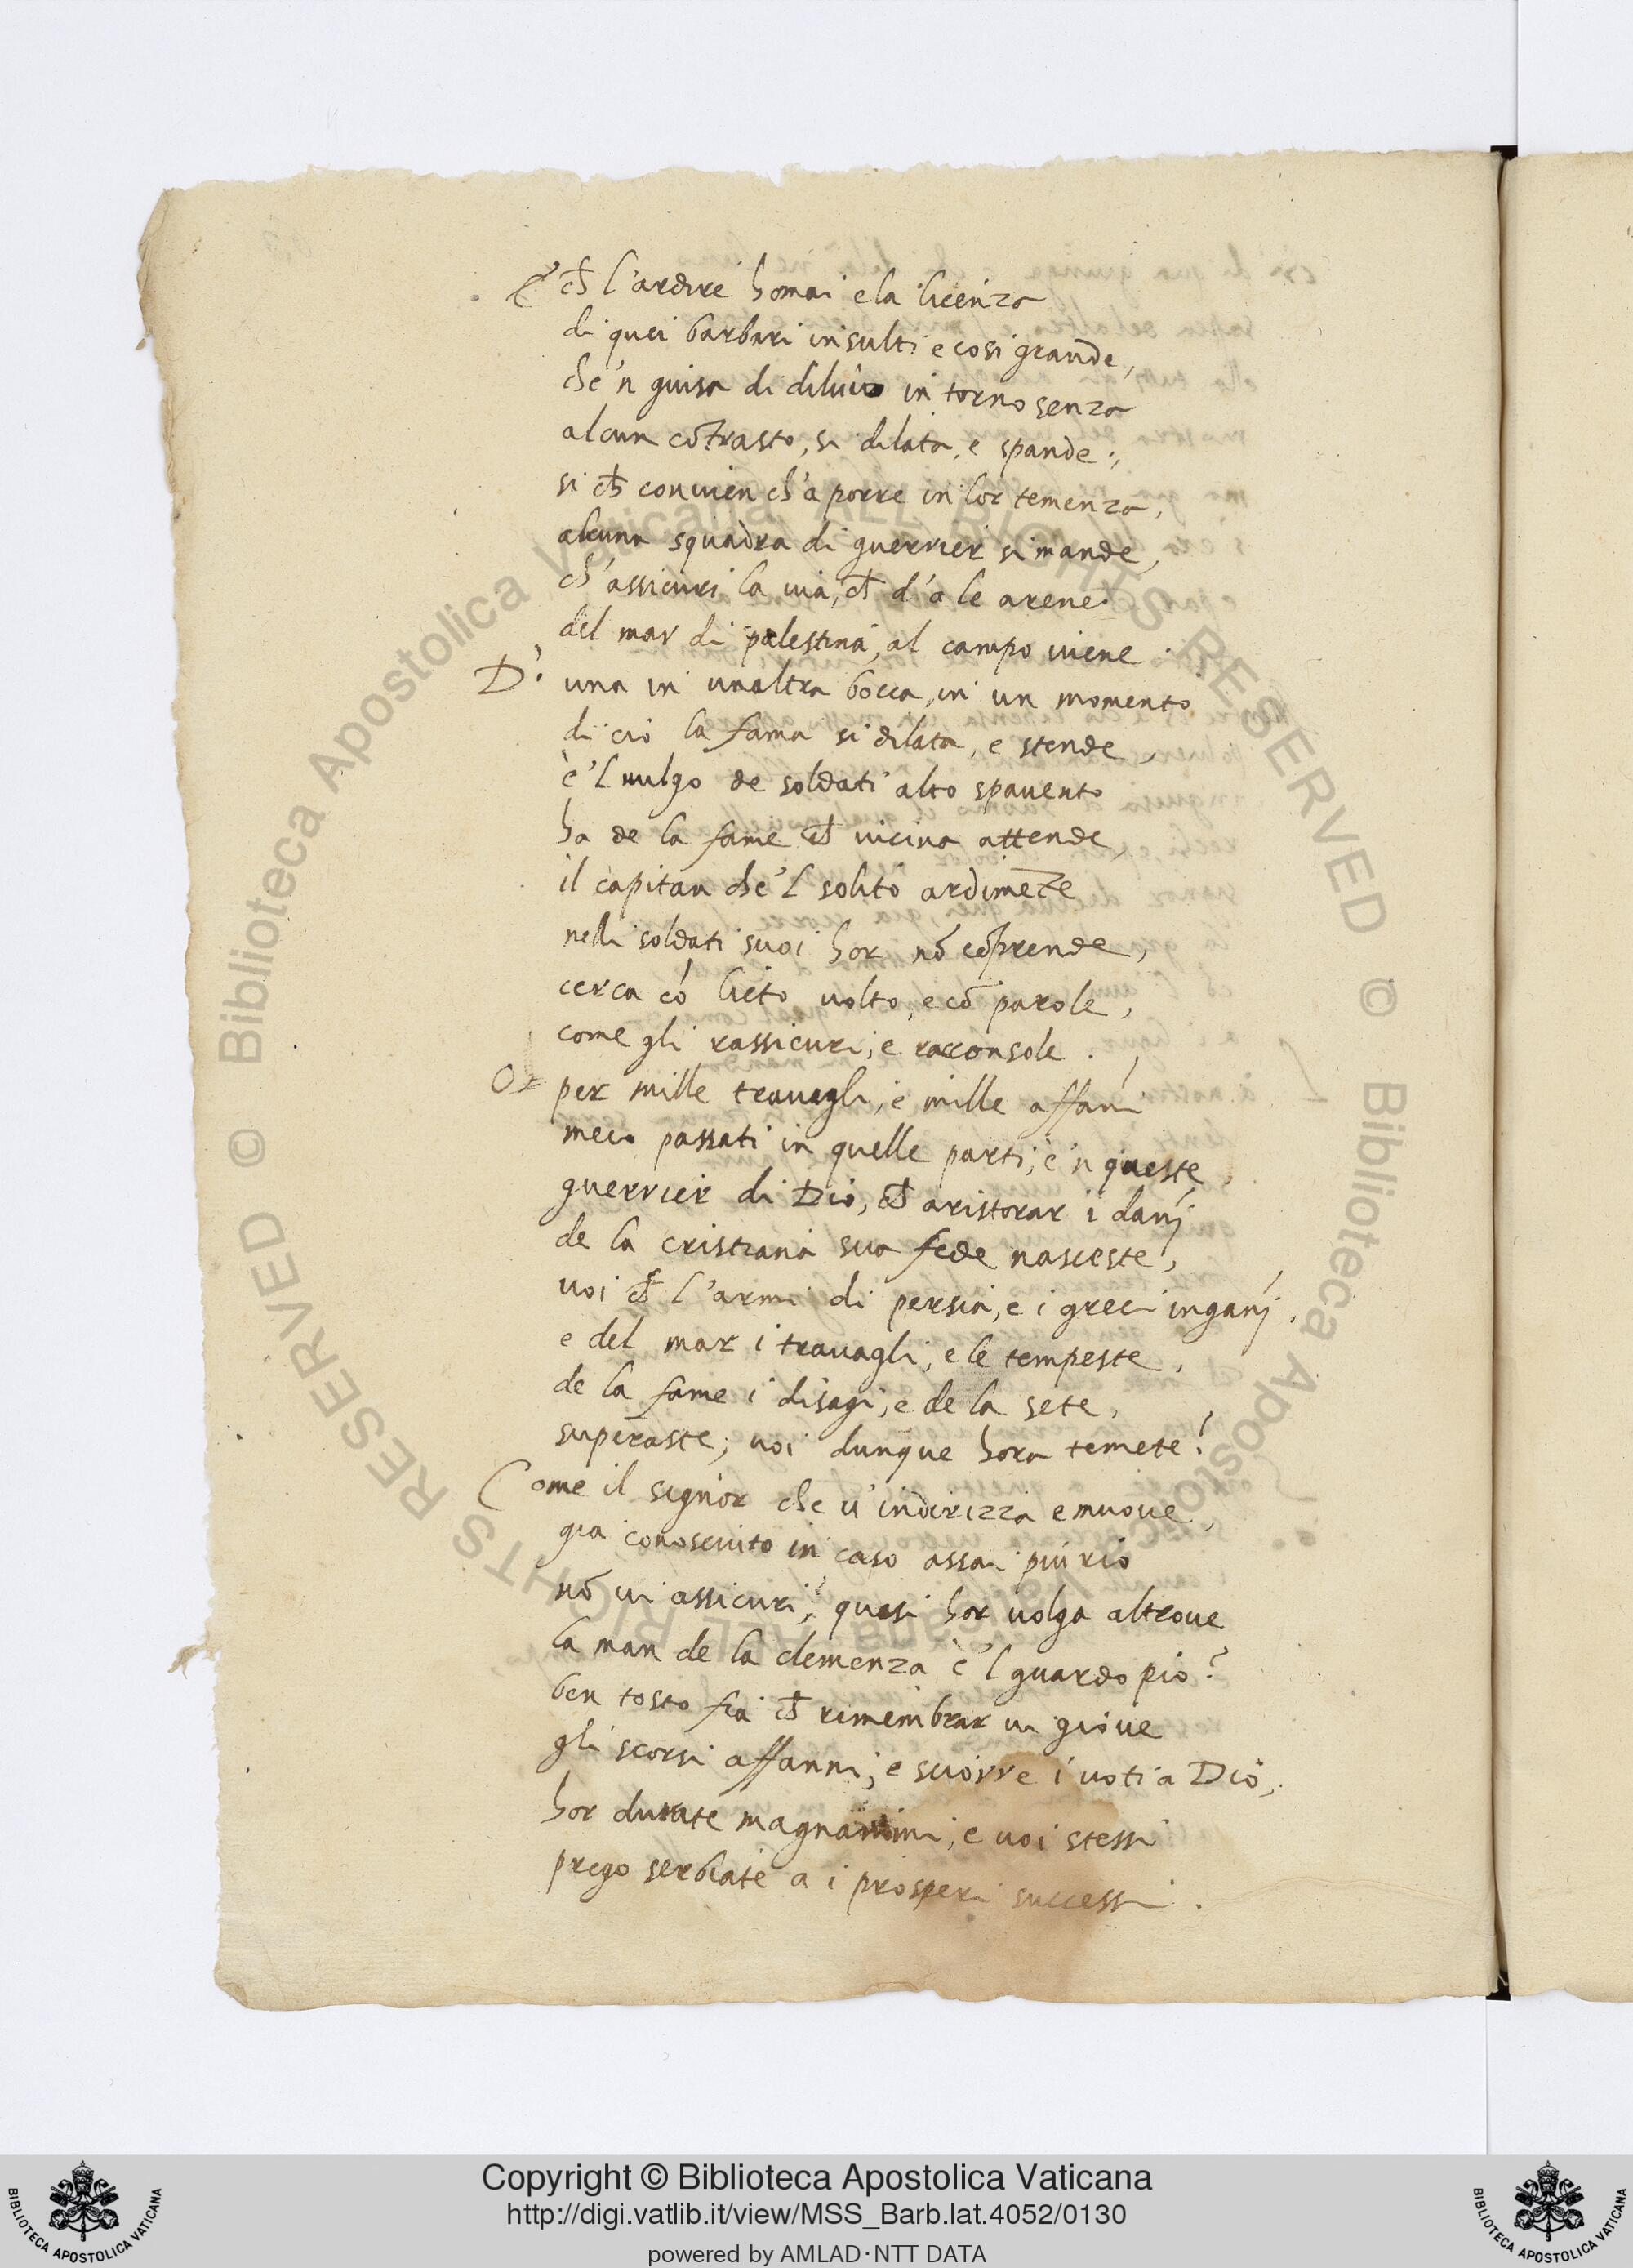 E ch l'ardire homai e la licenza
di quei barbari insulti e cosi grande,
che'n guisa di diluvio in torno senza
alcun cōtrasto, si dilata, e spande;
si ch convien ch'a porre in lor temenza,
alcuna squadra di guerrier si mande,
ch'assicuri la via, ch d'a le arene
del mar di palestina, al campo viene.
D'una in unaltra bocca, in un momento
di ciò la fama si dilata, e stende,
e'l vulgo de soldati alto spavento
ha de la fame ch vicina attende,
il capitan che'l solito ardimēte
nelli soldati suoi hor nō cōprende,
cerca cō lieto volto, e cō parole,
come gli rassicuri, e racconsole.
Or per mille travagli, e mille affāni
meco passati in quelle parti, e'n queste,
guerrier di Dio, ch aristorar i danj
de la cristiana sua fede nasceste,
voi ch l'armi di persia, e i greci inganj,
e del mar i travagli, e le tempeste,
de la fame i disagi, e de la sete,
superaste; voi dunque hora temete?
Come il signor che v'indirizza e muove,
gia conosciuto in caso assai più rio
nō vi assicuri? quasi hor volga altrove
la man de la clemenza e'l guardo pio?
ben tosto fia ch rimembrar vi giove
gli scorsi affanni, e sciorre i voti a Dio,
hor durate magnanimi, e voi stessi
prego serbiate a i prosperi successi.
© Biblioteca Apostolica Vaticana ALL RIGHTS RESERVED © Biblioteca Apostolica Vaticana ALL RIGHTS RESERVED
Copyright © Biblioteca Apostolica Vaticana
http://digi.vatlib.it/view/MSS_Barb.lat.4052/0130
powered by AMLAD·NTT DATA
BIBLIOTECA APOSTOLICA VATICANA
BIBLIOTECA APOSTOLICA VATICANA